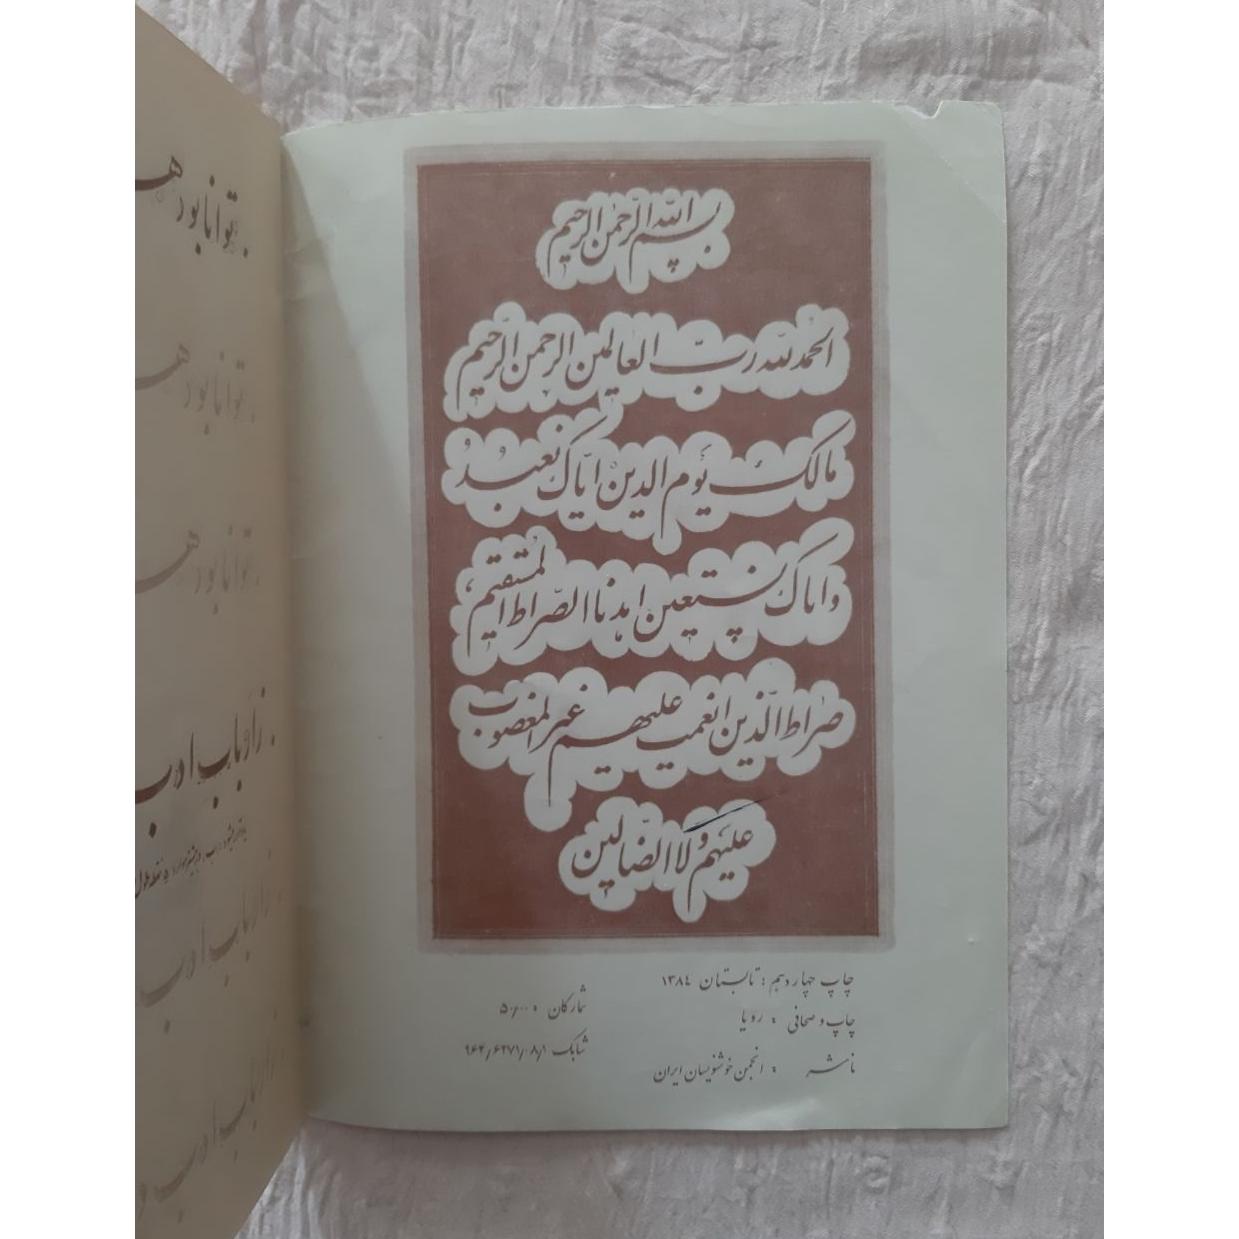 بسم الله الرحمن الرحیم
الحمد لله رب العالمین الرحمن الرحیم
مالک یوم الدین ایاک نعبد
و ایاک نستعین اهدنا الصراط المستقیم
صراط الذین انعمت علیهم غیر المغضوب
علیهم ولا الضالین
چاپ چهاردهم : تابستان ۱۳۸۴
چاپ و صحافی : رویا
ناشر : انجمن خوشنویسان ایران
شمارگان : ۵۰٫۰۰۰
شابک ۹۶۴٫۶۲۷۱٫۰۸٫۱
توانا بود هـ
توانا بود هـ
توانا بود هـ
ز ارباب ادب
ز ارباب ادب
ز ارباب ادب